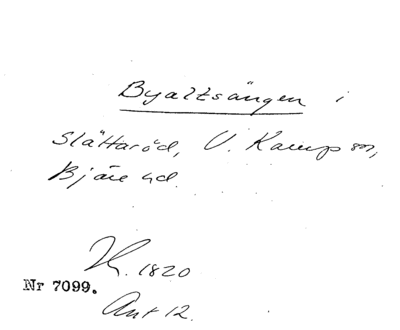 Byaltsängen i
Slättaröd, V. Karup sn,
Bjäre hd.
1820
Nr 7099.
Ant 12.